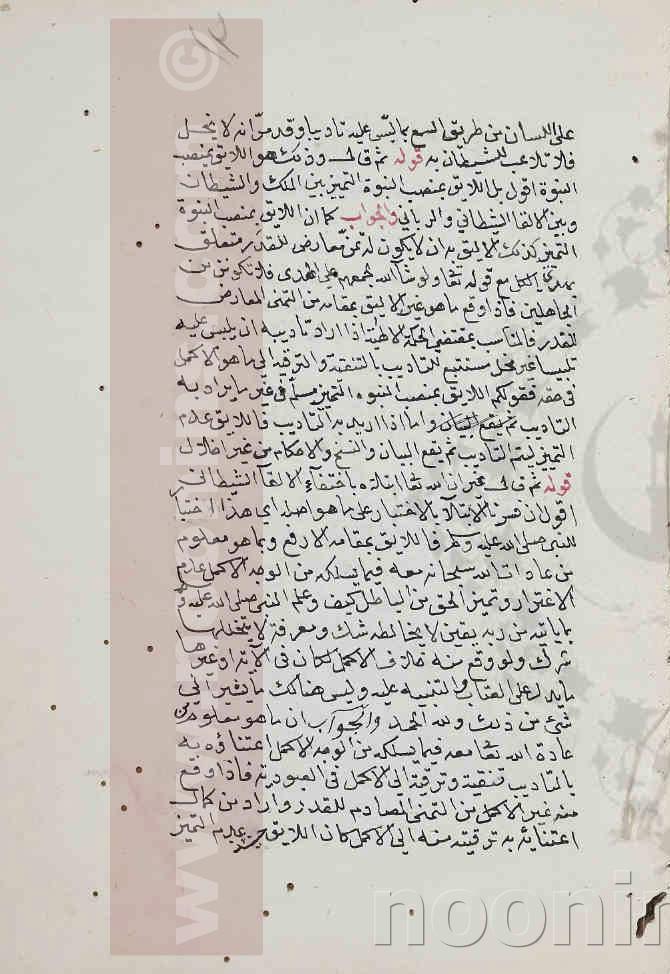 على اللسان من طريق السمع بما ليس عليه تاديبا وقد مر انه لا يخل
فلا تلاعب للشيطان به قوله ثم قال وذلك هو اللايق بمنصب
النبوة اقول بل اللايق بمنصب النبوة التمييز بين الملك والشيطان
وبين الالقا الشيطاني والرباني والجواب كما ان اللايق بمنصب النبوة
التميز كذلك الاليق به ان لا يكون له تمن معارض للقدر متعلق
بهداية الكل مع قوله تعا ولو شا الله لجمعهم على الهدى فلا تكونن من
الجاهلين فاذا وقع ما هو غير الاليق بمقامه من التمنى المعارض
للقدر فالمناسب بمقتضى الحكمة الالهية اذا اراد تاديبه ان يلبس عليه
تلبيسا غير مخل مستتبع للتاديب بالتنقية والترقية الى ما هو الاكمل
فى حقه فقولكم اللايق بمنصب النبوه التمييز مسلم فى غير ما يراد به
التاديب ثم يقع البيان واما اذا اريد به التاديب فاللايق عدم
التميز ليتم التاديب ثم يقع البيان والنسخ والاحكام من غير اخلال
قوله ثم قال غير ان الله تعا ابتلاه باختفاء الالقآ الشيطانى
اقول ان فسرنا الابتلاء بالاختبار على ما هو اصله اى هذا اختبا
للنبى صلى الله عليه وسلم فاللايق بمقامه الارفع وبما هو معلوم
من عادات الله سبحانه معه فيما يسلكه من الوجه الاكمل عدم
الاغترار وتميز الحق من الباطل كيف وعلم النبى صلى الله عليه و
بما ياتيه من ربه يقين لا يخالطه شك ومعرفة لا يتخللها
شرك ولو وقع منه خلاف الاكمل لكان فى الآية او غيرها
ما يدل على العتاب والتنبيه عليه وليس هنالك ما يشير الى
شئ من ذلك ولله الحمد والجواب ان ما هو معلوم من
عادة الله تعا معه فيما يسلكه من الوجه الاكمل اعتناؤه به
بالتاديب تنقية وترقية الى الاكمل فى العبودية فاذا وقع
منه غير الاكمل من التمنى المصادم للقدر واراد من كمال
اعتنايه به ترقيته منه الى الاكمل كان اللايق عدم التميز
noonin